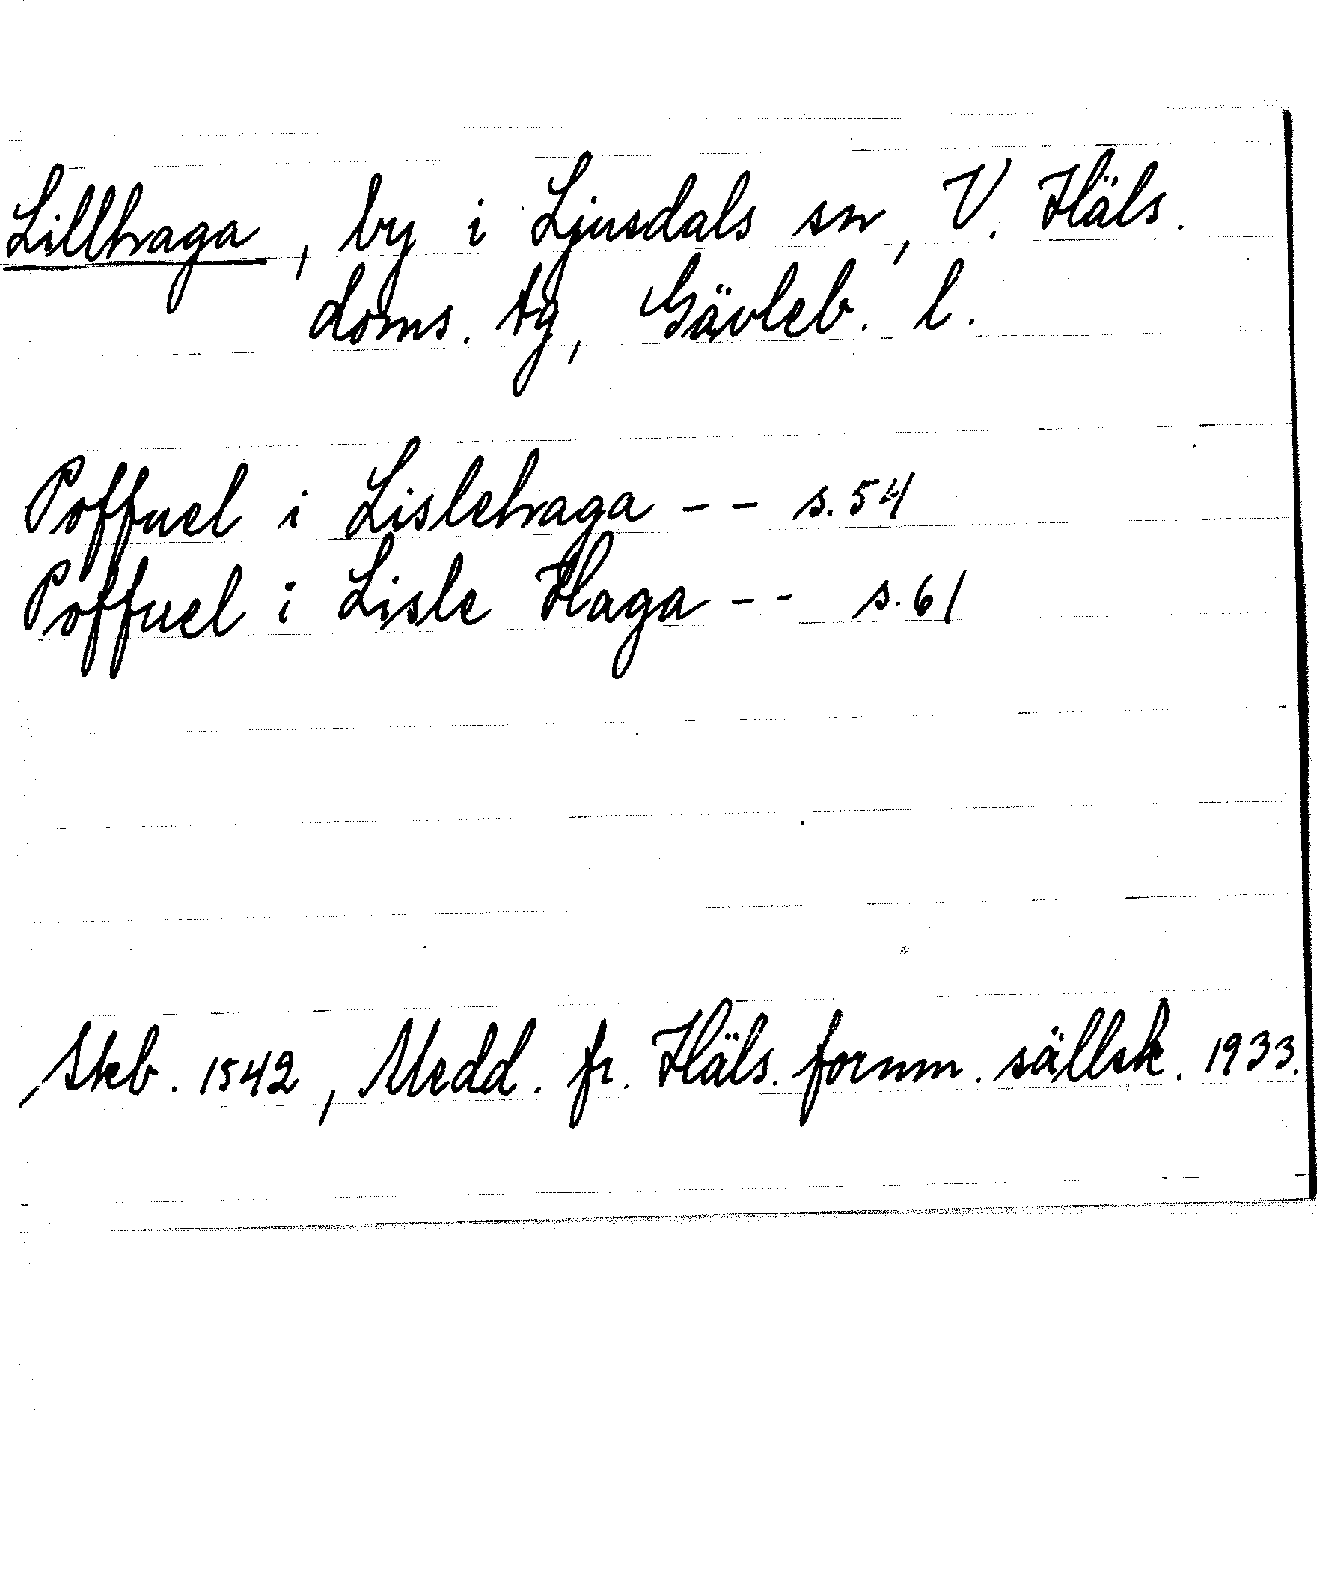 Lillhaga, by i Ljusdals sn, V. Häls.
doms. tg, Gävleb. l.
Poffuel i Lislehaga -- s. 54
Poffuel i Lisle Haga -- s. 61
Skb. 1542, Medd. fr. Häls. fornm. sällsk. 1933.